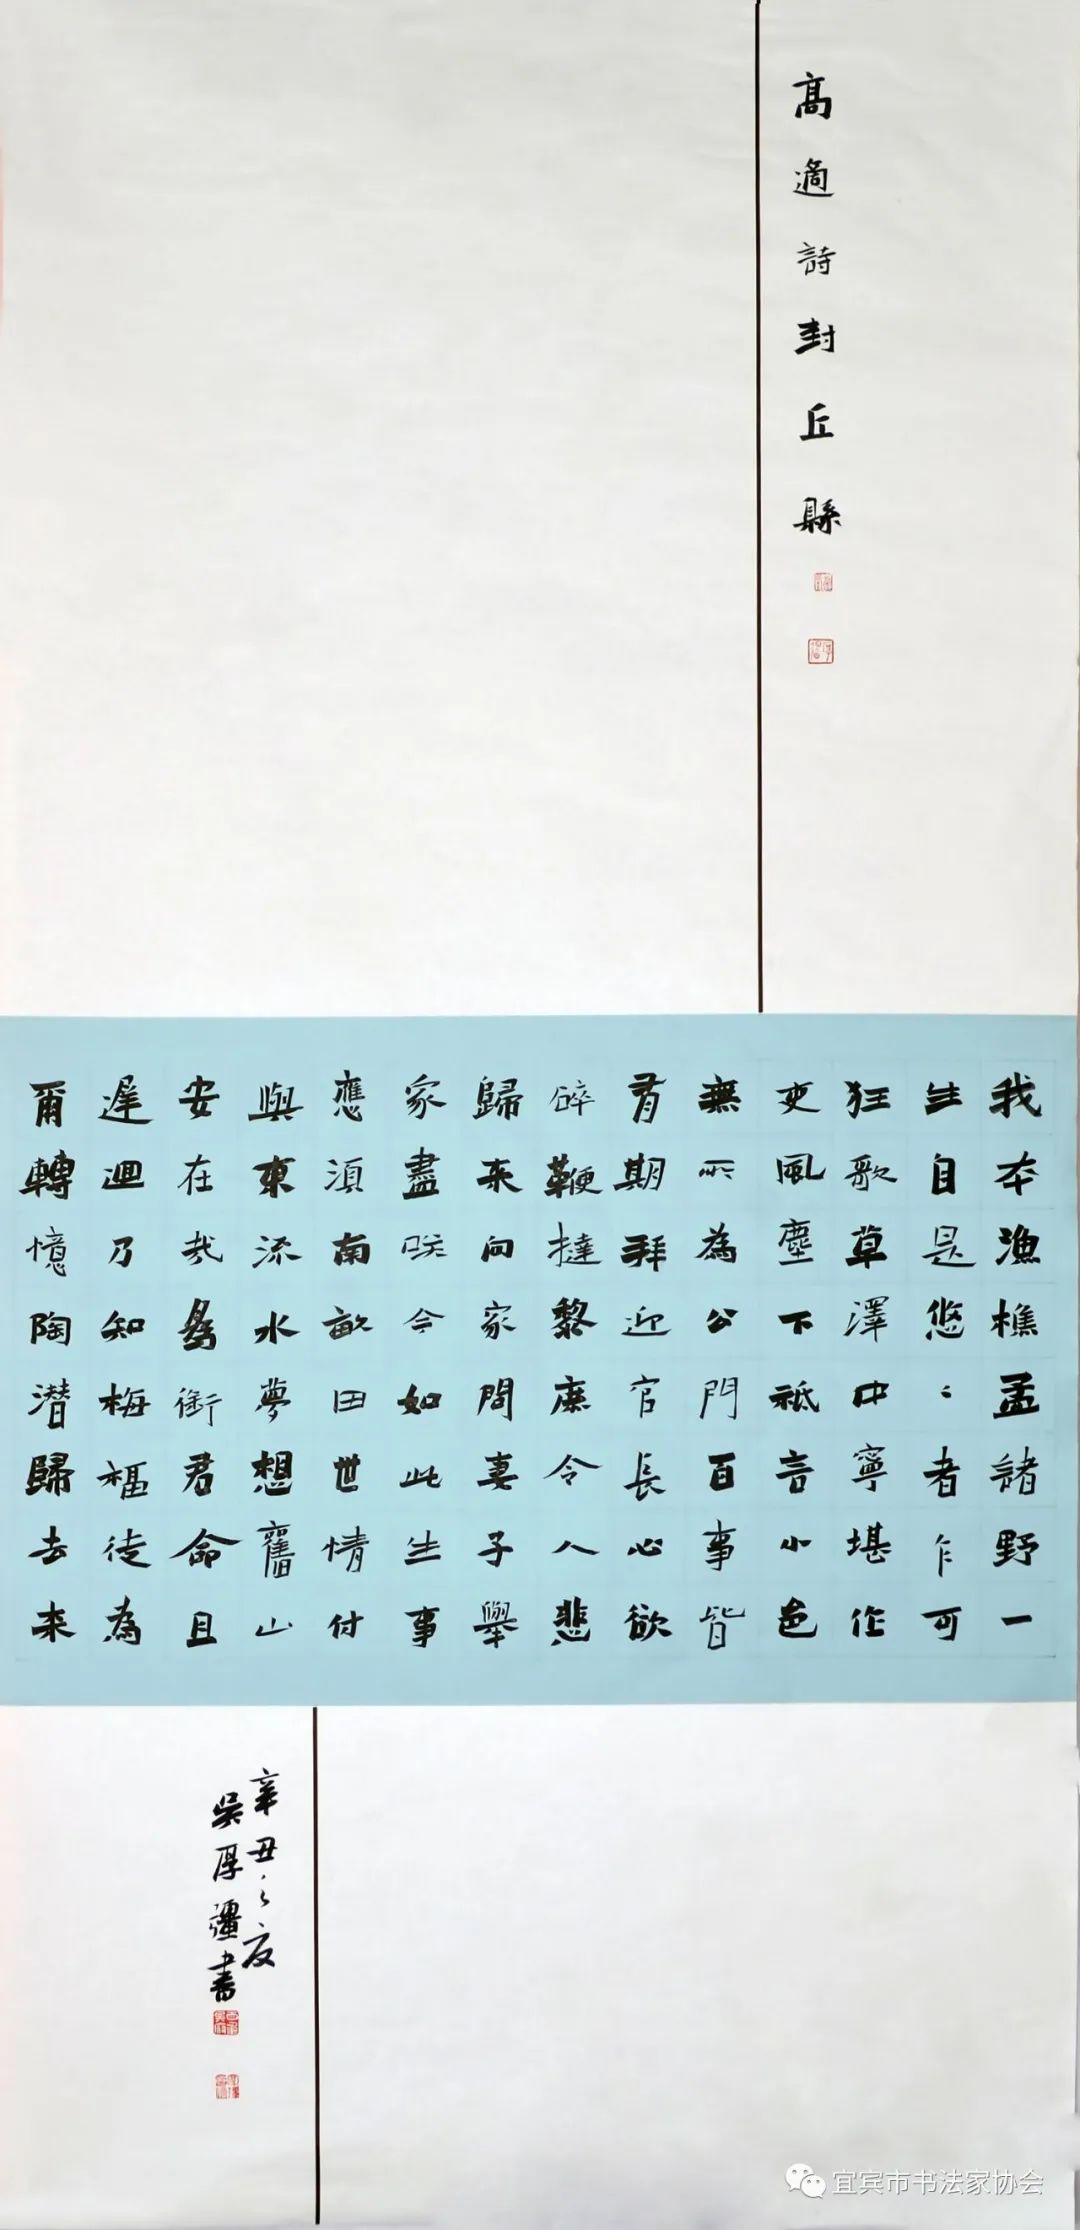 高適詩封丘縣
我本漁樵孟諸野一
生自是悠〻者乍可
狂歌草澤中寧堪作
吏風塵下祗言小邑
無所為公門百事皆
有期拜迎官長心欲
碎鞭撻黎庶令人悲
歸来向家問妻子舉
家盡咲今如此生事
應須南畝田世情付
與東流水夢想舊山
安在哉為銜君命且
遲迴乃知梅福徒為
爾轉憶陶潛歸去来
辛丑之夏
吳厚彊書
宜宾市书法家协会